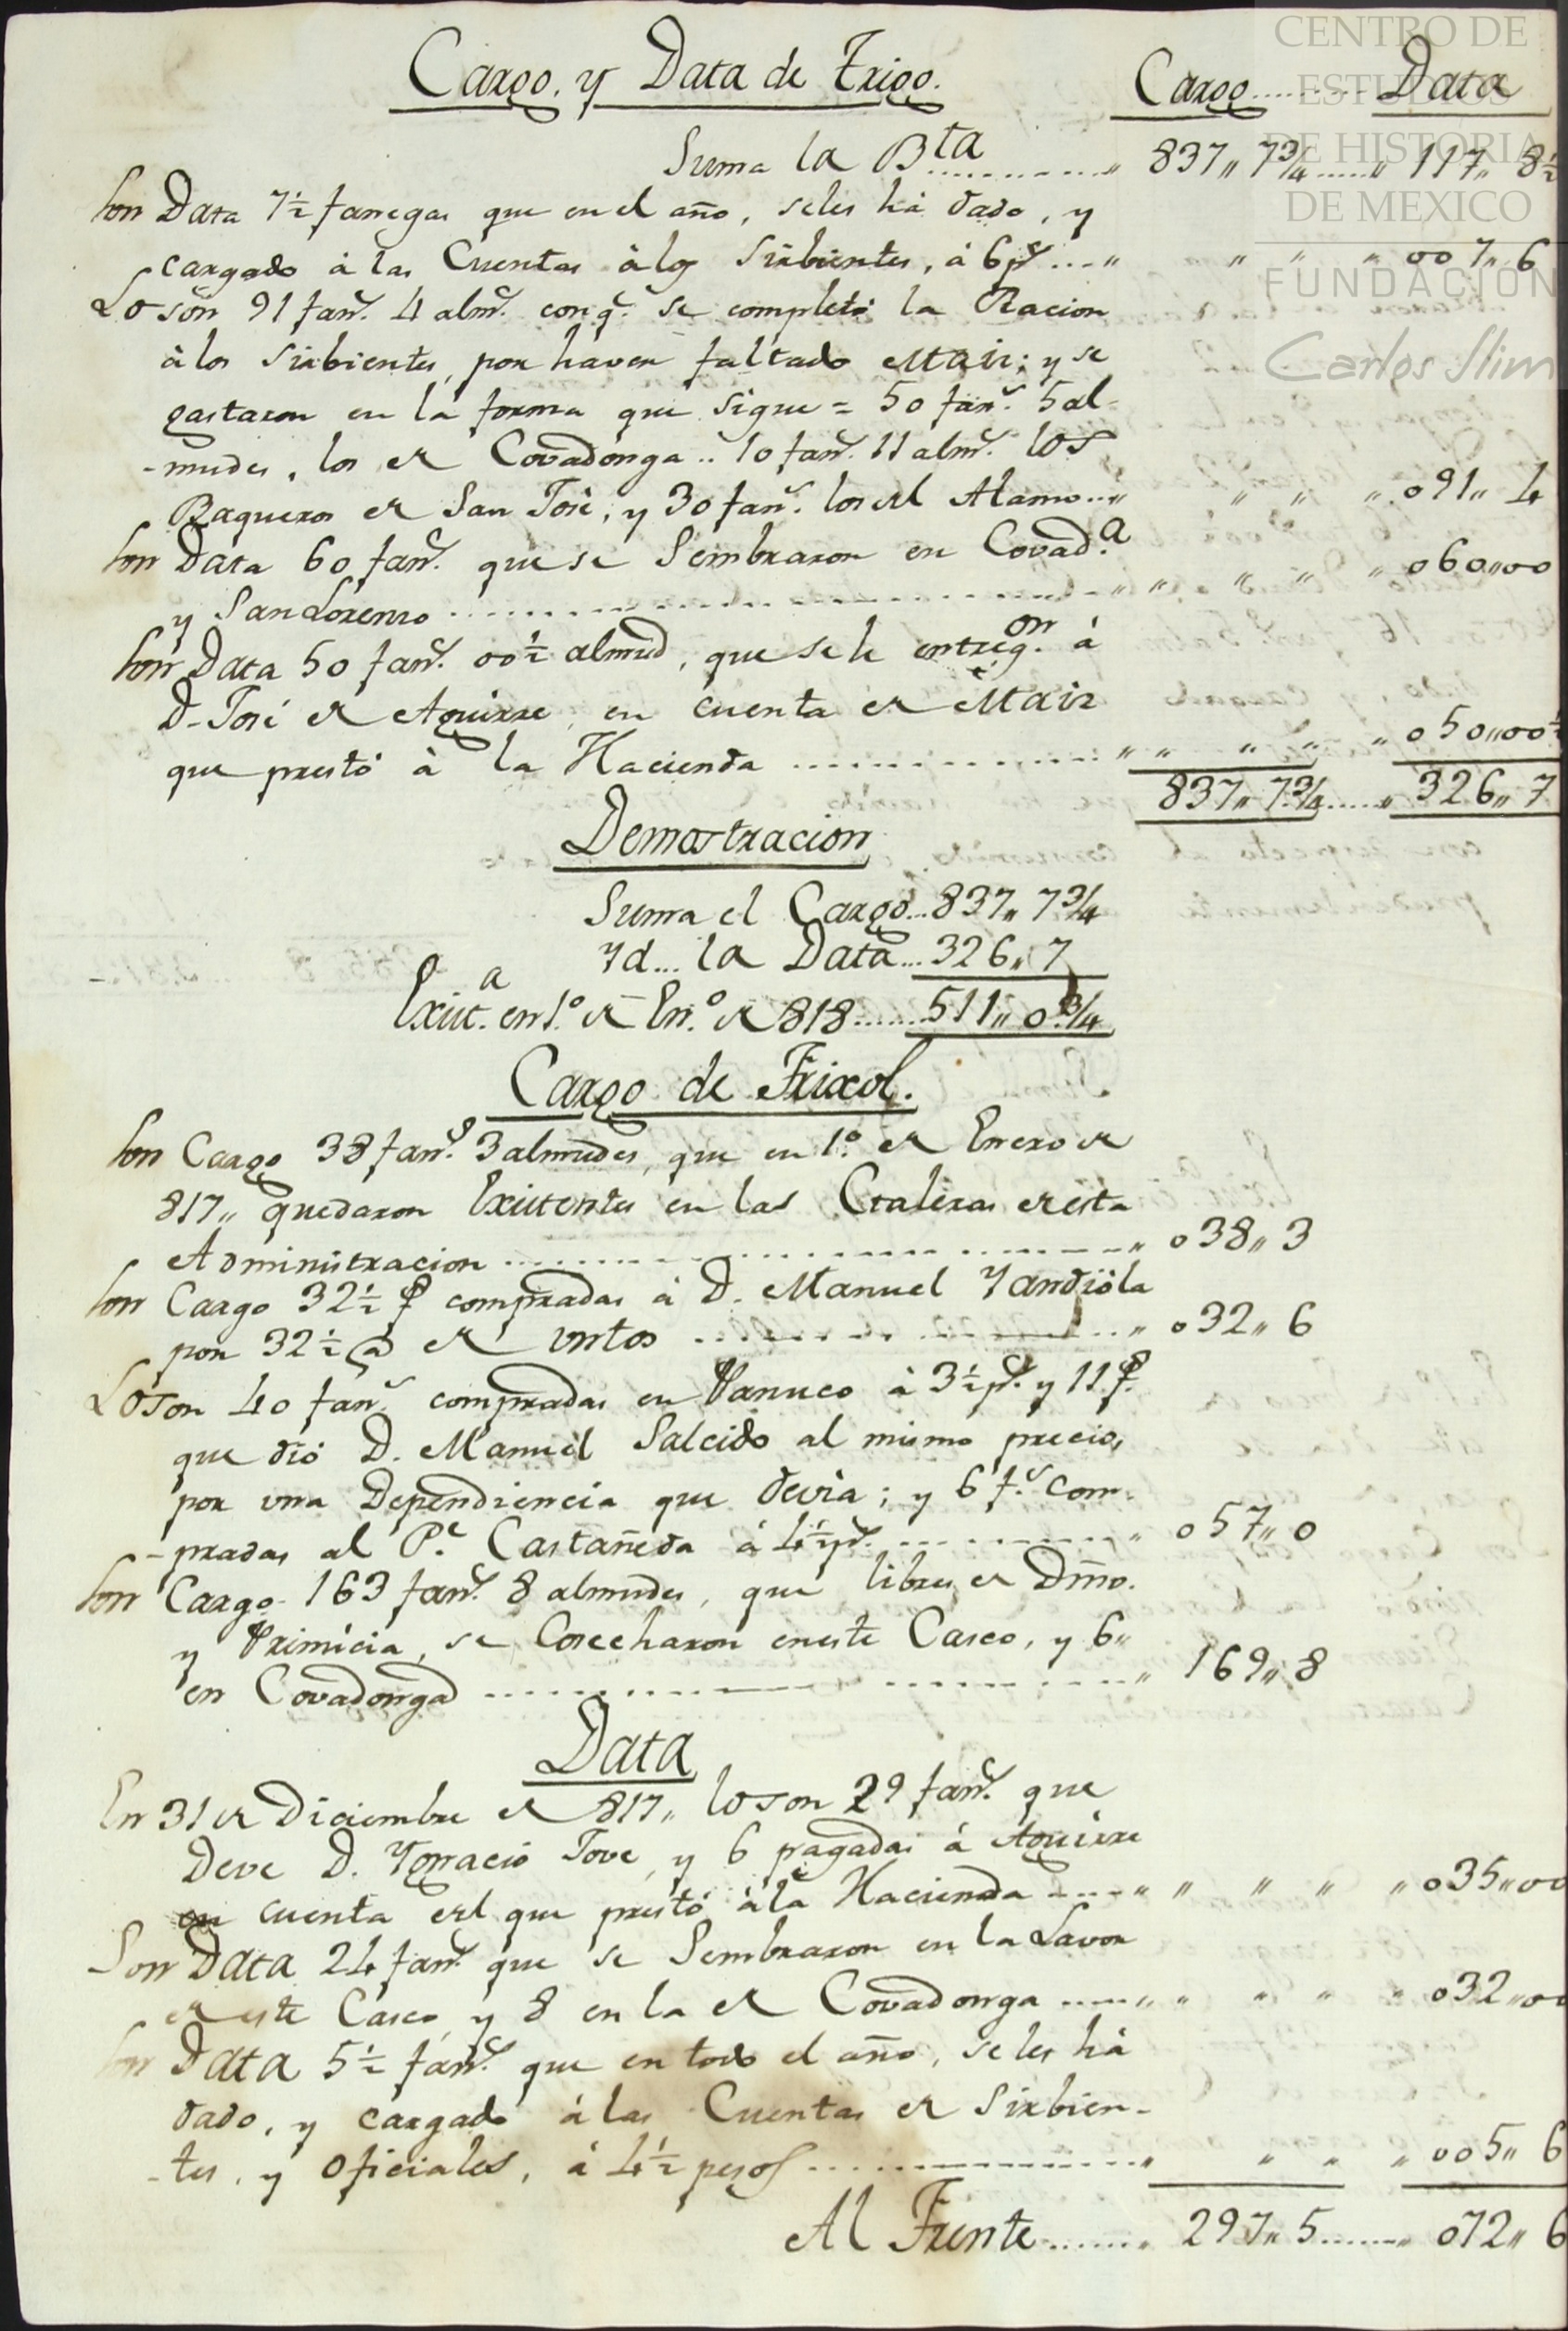 CENTRO DE
ESTUDIOS
DE HISTORIA
DE MEXICO
FUNDACIÓN
Carlos Slim
Cargo, y Data de Trigo. Cargo........Data
Suma la B.ta............,, 837,, 7¾......,, 117,, 8½
Son Data 7½ fanegas que en el año, se les há dado, y
cargado á las Cuentas á los Sirbientes, á 6 p.s....,, ,, ,, ,, 007,, 6
Lo són 91 fan.s 4 alm.s con q.e se completó la Racion
á los Sirbientes, por haver faltado Maiz; y se
gastaron en la forma que sigue = 50 fan.s 5 al-
-mudes, los de Covadonga.. 10 fan.s 11 alm.s los
Baqueros de San José, y 30 fan.s los del Alamo..,, ,, ,, ,, 091,, 4
Son Data 60 fan.s que se Sembraron en Covad.a
y San Lorenzo ..............................,, ,, ,, ,, ,, 060,,00
Son Data 50 fan.s 00½ almud, que se le entreg.on á
D. José de Aguirre, en cuenta de Maiz
que prestó á la Hacienda ................,, ,, ,, ,, ,, 050,,00½
837,, 7¾.....,, 326,, 7
Demostracion
Suma el Cargo...837,, 7¾
Yd... la Data...326,, 7
Exist.a en 1.o de En.o de 818.......511,, 0¾
Cargo de Frixol.
Son Cargo 38 fan.s 3 almudes, que en 1.o de Enero de
817,, quedaron Existentes en las Galeras de esta
Administracion ..............................,, 038,, 3
Son Cargo 32½ f.s compradas á D. Manuel Yandiola
por 32½ @ de untos ......................,, 032,, 6
Lo son 40 fan.s compradas en Panuco á 3½ p.s y 11 f.s
que dió D. Manuel Salcido al mismo precio,
por una Dependiencia que devia; y 6 f.s com-
-pradas al P.e Castañeda á 4½ p.s ............,, 057,, 0
Son Cargo 163 fan.s 8 almudes, que libres de Dmo.
y Primicia, se Cosecharon en este Casco, y 6,,
en Covadonga ..............................,, 169,, 8
Data
En 31 de Diciembre de 817,, lo son 29 fan.s que
Deve D. Ygnacio Tove, y 6 pagadas á Aguirre
en cuenta del que prestó á la Hacienda .....,, ,, ,, ,, ,, 035,,00
Son Data 24 fan.s que se Sembraron en la Lavor
de este Casco, y 8 en la de Covadonga .....,, ,, ,, ,, ,, 032,,00
Son Data 5½ fan.s que en todo el año, se les há
dado, y cargado á las Cuentas de Sirbien-
-tes, y Oficiales, á 4½ pesos ....................,, ,, ,, ,, 005,, 6
Al Frente.......,, 297,, 5.......,, 072,, 6